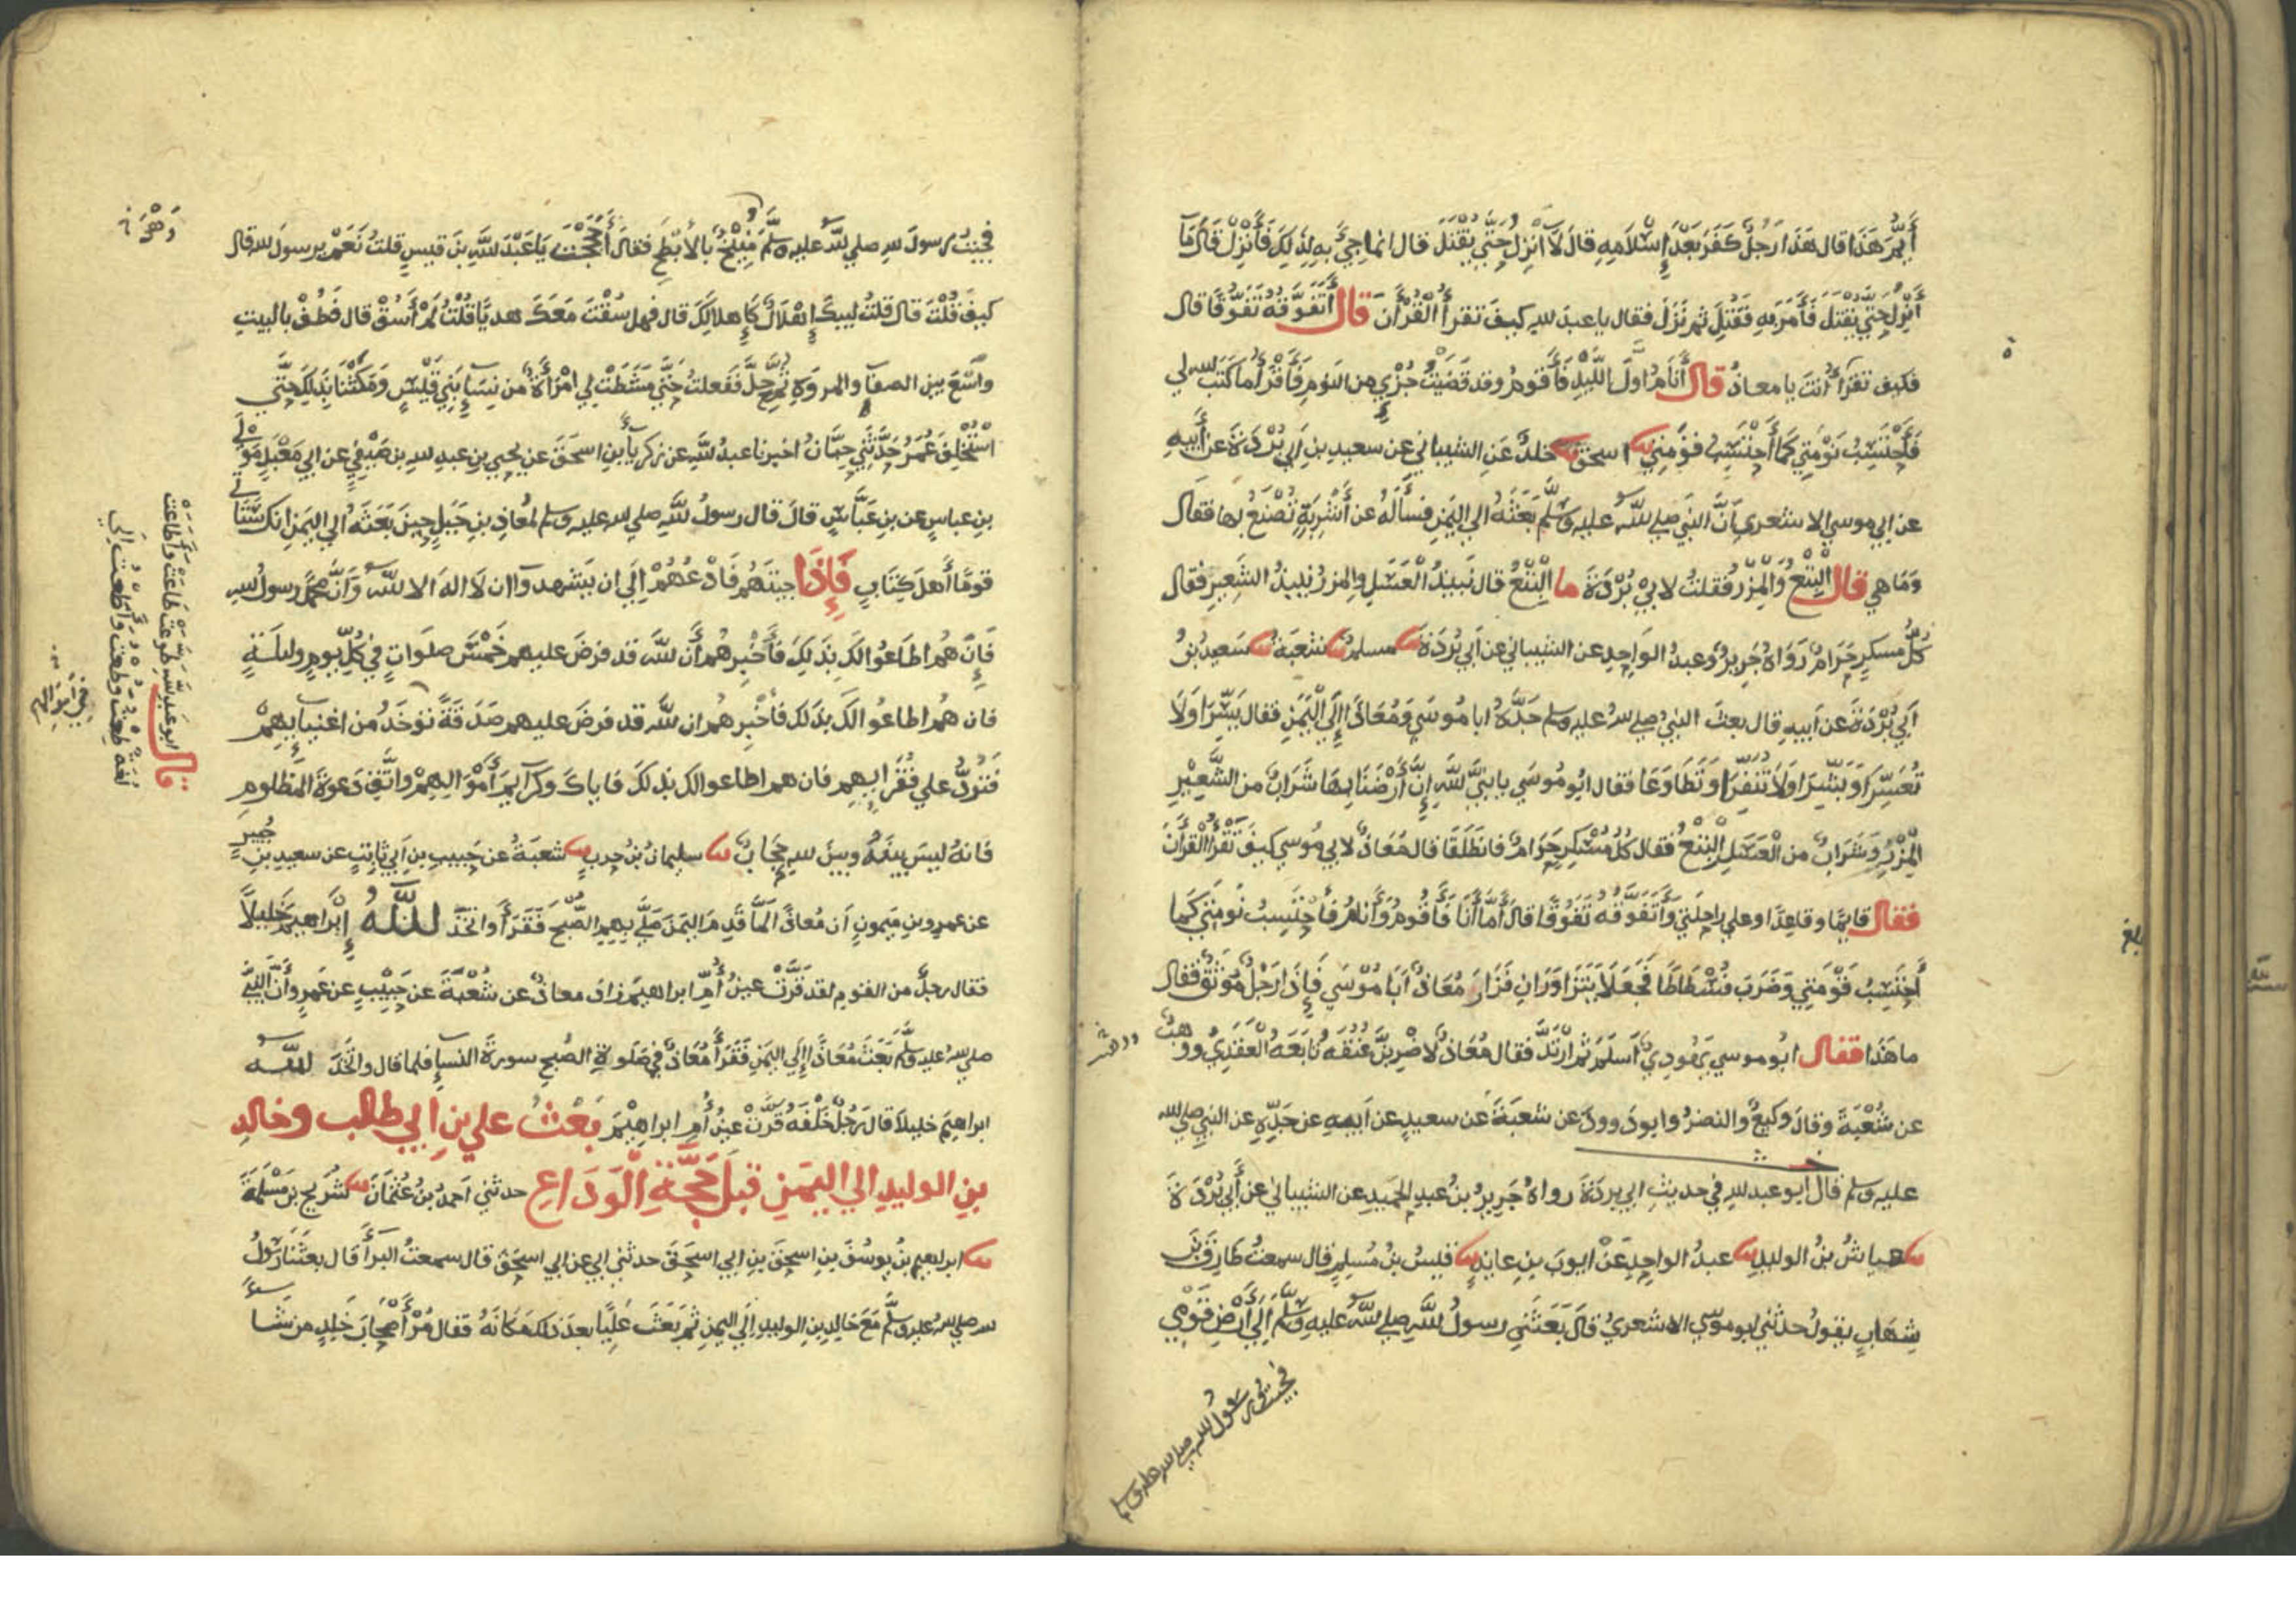 أَيْمَ هَذَا قال هَذَا رَجُلٌ كَفَرَ بَعْدَ إِسْلَامِهِ قالَ لَا أَنْزِلُ حَتَّى يُقْتَلَ قال انما جِيءَ بِهِ لِذَلِكَ فَأَنْزِلْ قَالَ مَا
أَنْزِلُ حَتَّى يُقْتَلَ فَأَمَرَ بِهِ فَقُتِلَ ثم نَزَلَ فقال يا عبدَ للهِ كيفَ تقرأُ الْقُرْأَنَ قال أَتَفَوَّقُهُ تَفَوُّقًا قال
فكيف تقرَأُ أَنتَ يا معاذُ قال أَنَامُ اولَ اللَّيْلِ فَأَقومُ وقد قَضَيْتُ جُزْءِي من النومِ فَأَقْرَأُ ما كَتَبَ لله لي
فَأَحْتَسِبُ نَوْمَتِي كَمَا أَحْتَسِبُ قوْمَتِي اسحق خلدٌ عَنِ الشيباني عن سعيدِ بنِ أبي بُرْدَةَ عن أَبِيهِ
عن ابي موسي الاشعري أَنَّ النبيَ صلي لله عليه وَسَلَّمَ بَعَثَهُ الي اليَمَنِ فسأَلَهُ عن أَشْرِبَةٍ تُصْنَعُ بها فقال
وَمَا هي قال الْبِتْعُ وَالْمِزْرُ فقلتُ لابي بُرْدَةَ ما الْبِتْعُ قال نبيذُ الْعَسَلِ والمِزرُ نبيذُ الشَعِيرِ فقال
كُلُّ مسكرٍ حَرَامٌ رَوَاهُ جَرِيرٌ وعبدُ الواحِدِ عن الشيباني عن أَبي بُرْدَةَ مسلمٌ شعبَةُ سَعيدُ بْنُ
أَبي بُرْدَةَ عن أَبيهِ قال بعثَ النبيُ صلي لله عليه وسلم جَدَّهُ ابا مُوسَي وَمُعَاذًا إِلَى الْيَمَنِ فقال يَسِّرَا وَلَا
تُعَسِّرَا وَبَشِّرَا وَلَا تُنَفِّرَا وَتَطَاوَعَا فقال ابُو مُوسَي يا نبيَّ للهِ إِنَّ أَرْضَنَا بِهَا شَرَابٌ من الشَّعِيْرِ
الْمِزْرُ وَشَرَابٌ من الْعَسَلِ الْبِتْعُ فقال كُلُ مُسْكِرٍ حَرَامٌ فانطَلَقَا فال مُعَاذٌ لابي مُوسي كيفَ تَقْرَأُ الْقُرأنَ
فقال قايِمًا وقاعِدًا وعلي راحِلَتِي وَأَتَفَوَّقُهُ تَفَوُّقًا قالَ أَمَّا أَنَا فَأَقُومُ وَأَنامُ فأَحْتَسِبُ نَومَتِي كَما
أَحْتَسِبُ قَوْمَتِي وَضَرَبَ فُسْطَاطًا فَجَعَلَا يَتَزَاوَرَانِ فَزَارَ مُعَاذٌ أَبَا مُوسَي فَإِذَا رَجُلٌ مُوثَقٌ فَقال
ما هَذَا فقال ابُو موسي يَهُودِيٌّ أَسلَمَ ثم ارْتَدَّ فقال مُعَاذٌ لَاضْرِبَنَّ عُنُقَهُ تابَعَهُ الْعَقَدِيُ ووهبٌ
عن شُعْبَةَ وقالَ وكيعٌ والنضرُ وابو دَاوودَ عن شعبَةَ عن سعيدٍ عن أبيهِ عن جَدِّهِ عن النبيِ صلي لله
عليه وسلم قال أبو عبد للهِ في حديثِ ابي بردَةَ رواهُ جَرِيرُ بنُ عبدِ الحَمِيدِ عن الشيباني عن أَبي بُرْدَةَ
عباسُ بنُ الوليدِ عبدُ الواحِدِ عَنْ ايوبَ بنِ عايذٍ قيسُ بنُ مُسلِمٍ قال سمعتُ طارِقَ بْنَ
شِهَابٍ يقولُ حدثني ابو موسي الاشعريُ قالَ بَعَثَنِي رسولُ للهِ صلي لله عليه وسَلَّمَ إِلَى أَرْضِ قَوْمِي
فجيتُ رسولَ لله صلي لله عليه وسلم
بلغ
فجيتُ رسولَ للهِ صلي للهُ عليه وسَلَّمَ مُنِيْخٌ بالأبْطَحِ فقال أَحَجَجْتَ يَا عَبْدَ للهِ بنَ قيسٍ قلتُ نَعَمْ يرسولَ لله قال
كيفَ قُلْتَ قالَ قلتُ لبيكَ إِهْلَالٌ كَإِهلالِكَ قال فهل سُقْتَ مَعَكَ هديًا قُلْتُ لَمْ أَسُقْ قال فَطُفْ بالبيتِ
واسْعَ بين الصفا والمروةِ ثُمَّ حِلَّ فَفَعلتُ حَتَّى مَشَطَتْ لي امْرَأَةٌ من نِسَاءِ بَنِي قَيْسٍ وَمَكَثْنَا بِذَلِكَ حَتَّى
اسْتُخْلِفَ عُمَرُ حَدَّثَنِي حِبَّانُ اخبرنا عبدُ للهِ عن زكرياءَ بنِ اسحَقَ عن يحيي بنِ عبدِ للهِ بن صَيْفِيٍ عن ابي مَعْبَدٍ مَوْلَى
بنِ عباسٍ عن بنِ عَبَّاسٍ قالَ قال رسولُ للهِ صلي لله عليه وسلم لمُعاذِ بنِ جَبَلٍ حِينَ بَعَثَهُ الي اليَمَنِ انك سَتَأتِي
قومًا أَهلَ كِتَابٍ فَإِذَا جيتَهُم فَادْعُهُمْ إِلَي ان يَشهدوا ان لَا الهَ الا لله وَأَنَّ محمدًا رسولُ للهِ
فَإِنْ هُم اطَاعُوا لكَ بِذَلِكَ فَأَخْبِرْهُم أَن للهَ قد فرضَ عليهم خَمْسَ صلواتٍ في كُلِّ يومٍ وليلةٍ
فان هُم اطاعُوا لكَ بذلك فأَخْبِرهُم ان لله قد فرضَ عليهم صَدَقَةً توْخَذُ من اغنيايِهِمْ
فَتُرَدُّ علي فُقَرَايِهِم فان هم اطاعوا لك بذلكَ فاياكَ وكرايمَ أَمْوَالِهِمْ واتَّقِ دَعوةَ المظلومِ
فانهُ ليسَ بينَهُ وبينَ للهِ حِجَابٌ سليمانُ بْنُ حربٍ شعبَةُ عن حَبِيبِ بنِ أَبي ثابِتٍ عن سعيدِ بنِ جُبيرٍ
عن عمرِو بنِ مَيمونٍ أَن مُعاذًا لَمَّا قَدِمَ اليَمَنَ صَلَّى بِهِمِ الصُّبْحَ فَقَرَأَ وَاتَّخَذَ للهُ إِبْرَاهِيمَ خَلِيلًا
فقال رجلٌ من القومِ لقد قَرَّتْ عينُ أُمِّ ابراهيمَ زاد معاذٌ عن شُعْبَةَ عن حَبِيْبٍ عن عَمرٍو أَنَّ النَّبيَّ
صلي للهُ عليه وسلَّمَ بَعَثَ مُعَاذًا إِلَي اليَمَنِ فَقَرَأَ مُعَاذٌ في صَلوةِ الصُبحِ سورةَ النساءِ فلما قال واتَّخَذَ للهُ
ابراهِيمَ خليلًا قال رَجُلٌ خَلْفَهُ قَرَّتْ عينُ أُمِ ابراهِيْمَ بَعْثُ علي بنِ أبي طالِبٍ وخالدِ
بنِ الوليدِ الي اليَمَنِ قبلَ حَجَّةِ الْوَدَاعِ حدثني احمدُ بنُ عُثمَانَ شُرَيح بنُ مَسْلَمَةَ
ابرهيم بنُ يوسُفَ بنِ اسحقَ بنِ ابي اسحَقَ حدثني ابي عن ابي اسحَق قال سمعتُ البَرَأَ قال بعثَنا رسولُ
لله صلي لله عليه وسلَّمَ مَعَ خالدِ بنِ الوليدِ إلَي اليمنِ ثم بَعَثَ عَلِيًّا بعدَ ذلك مَكَانَهُ فقال مُرْ أَصْحَابَ خَلِدٍ من شا
قال ابو عبد لله طوعت طَاعَتْ وأطاعت
لغة طِعتُ وطُعتُ وأَطَعتُ